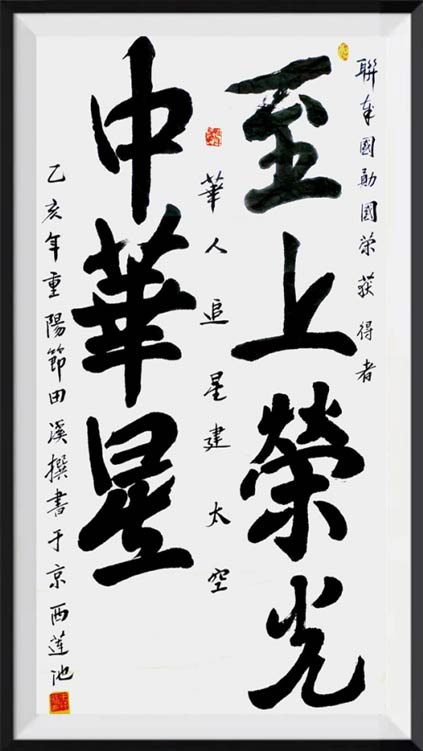 聯國勛國榮获得者
至上榮光
華人追星建太空
中華星
乙亥年重陽節田溪撰書于京西蓮池